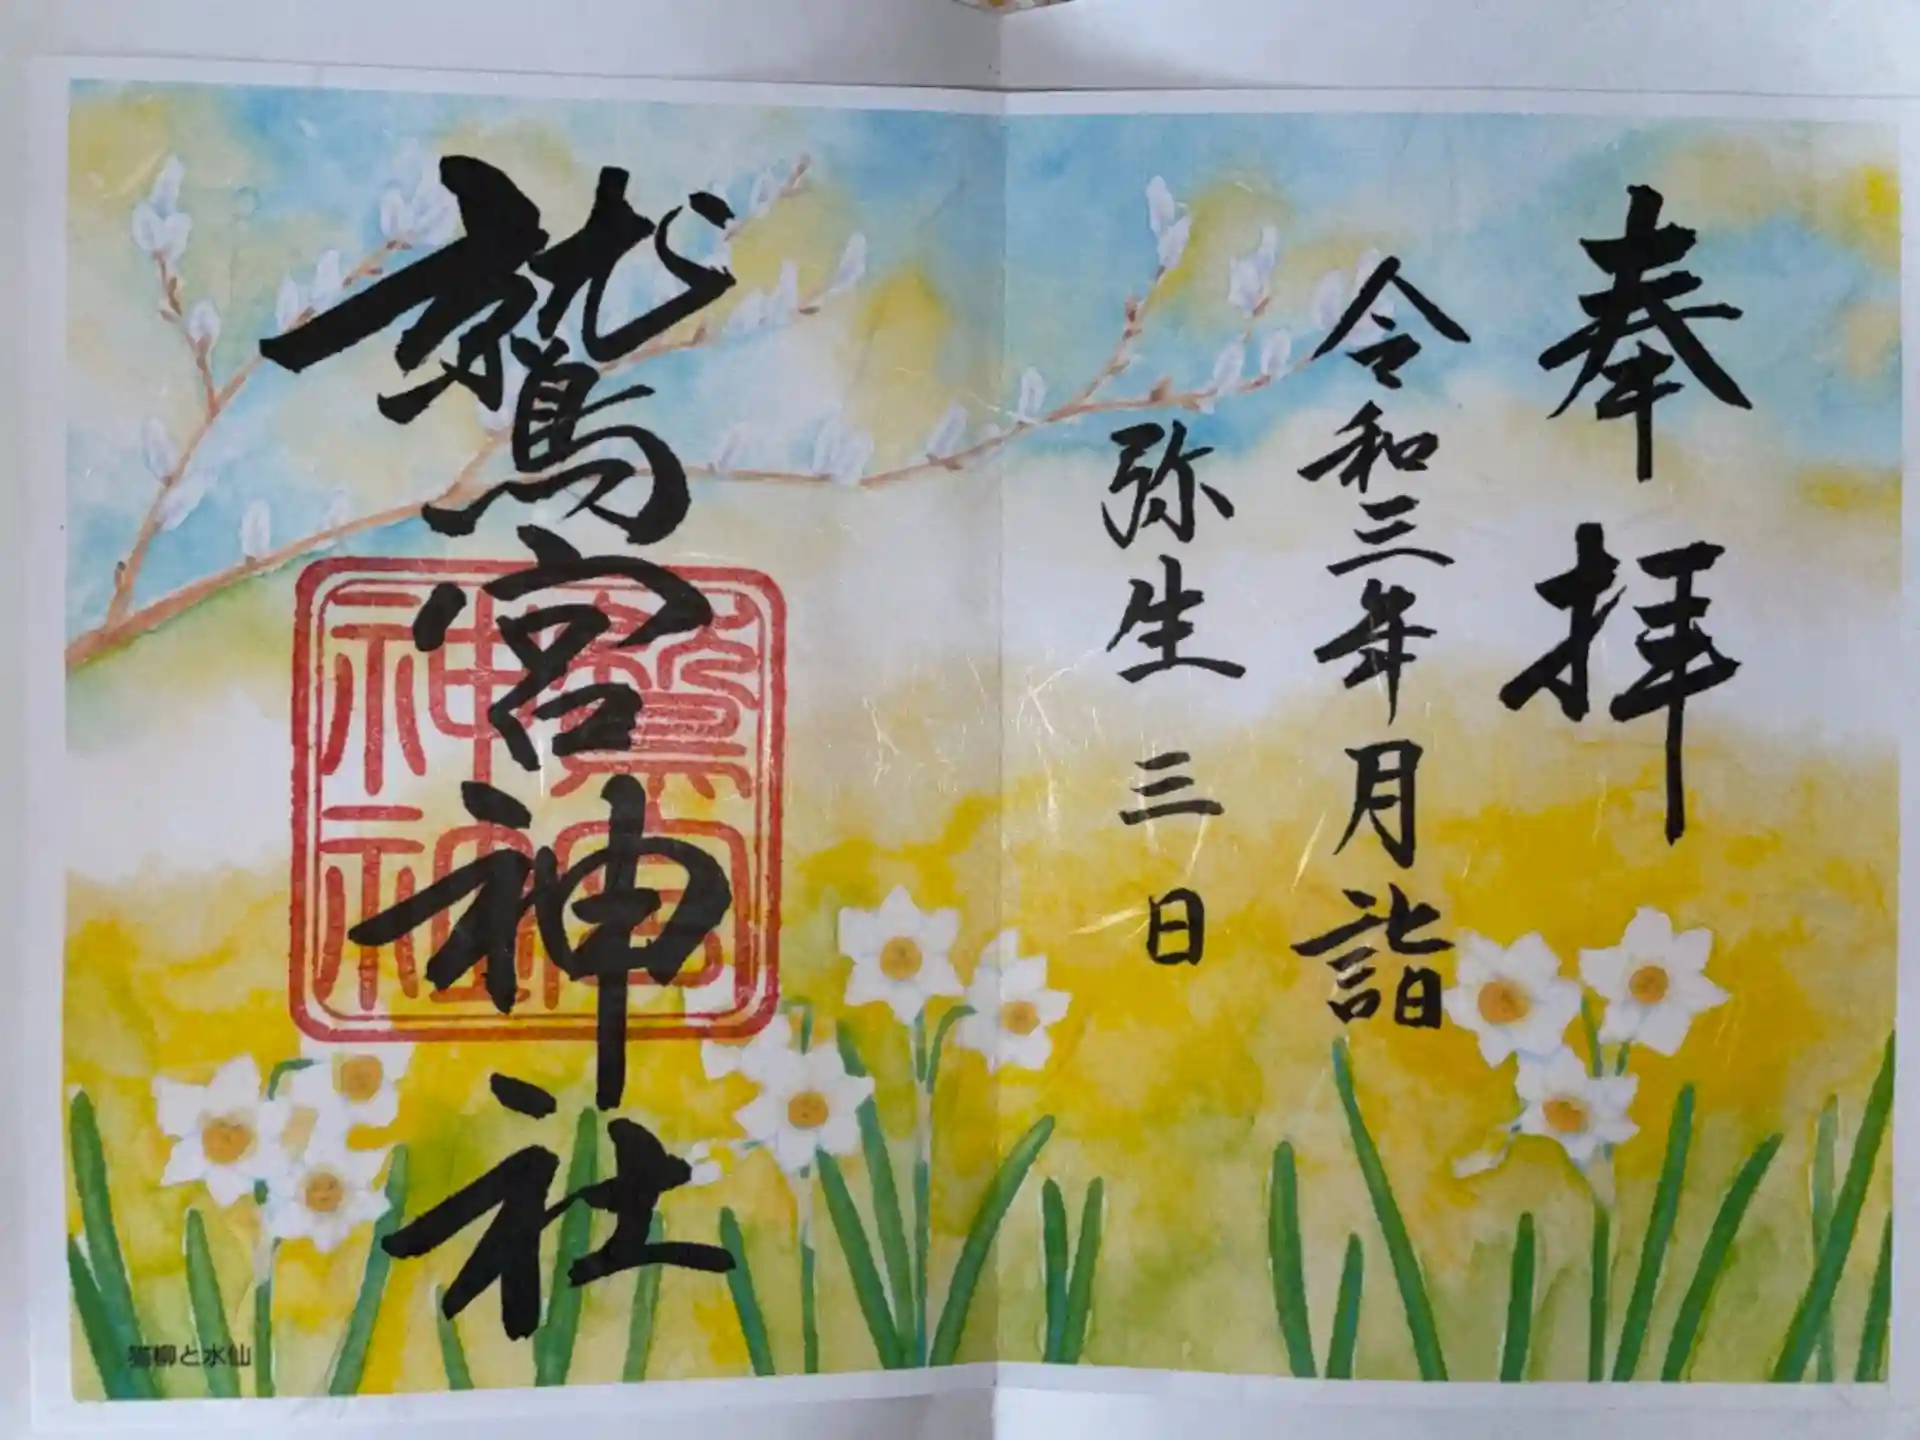 奉拝
令和三年月詣
弥生三日
鷲宮神社
鷲宮
神社
猫柳と水仙